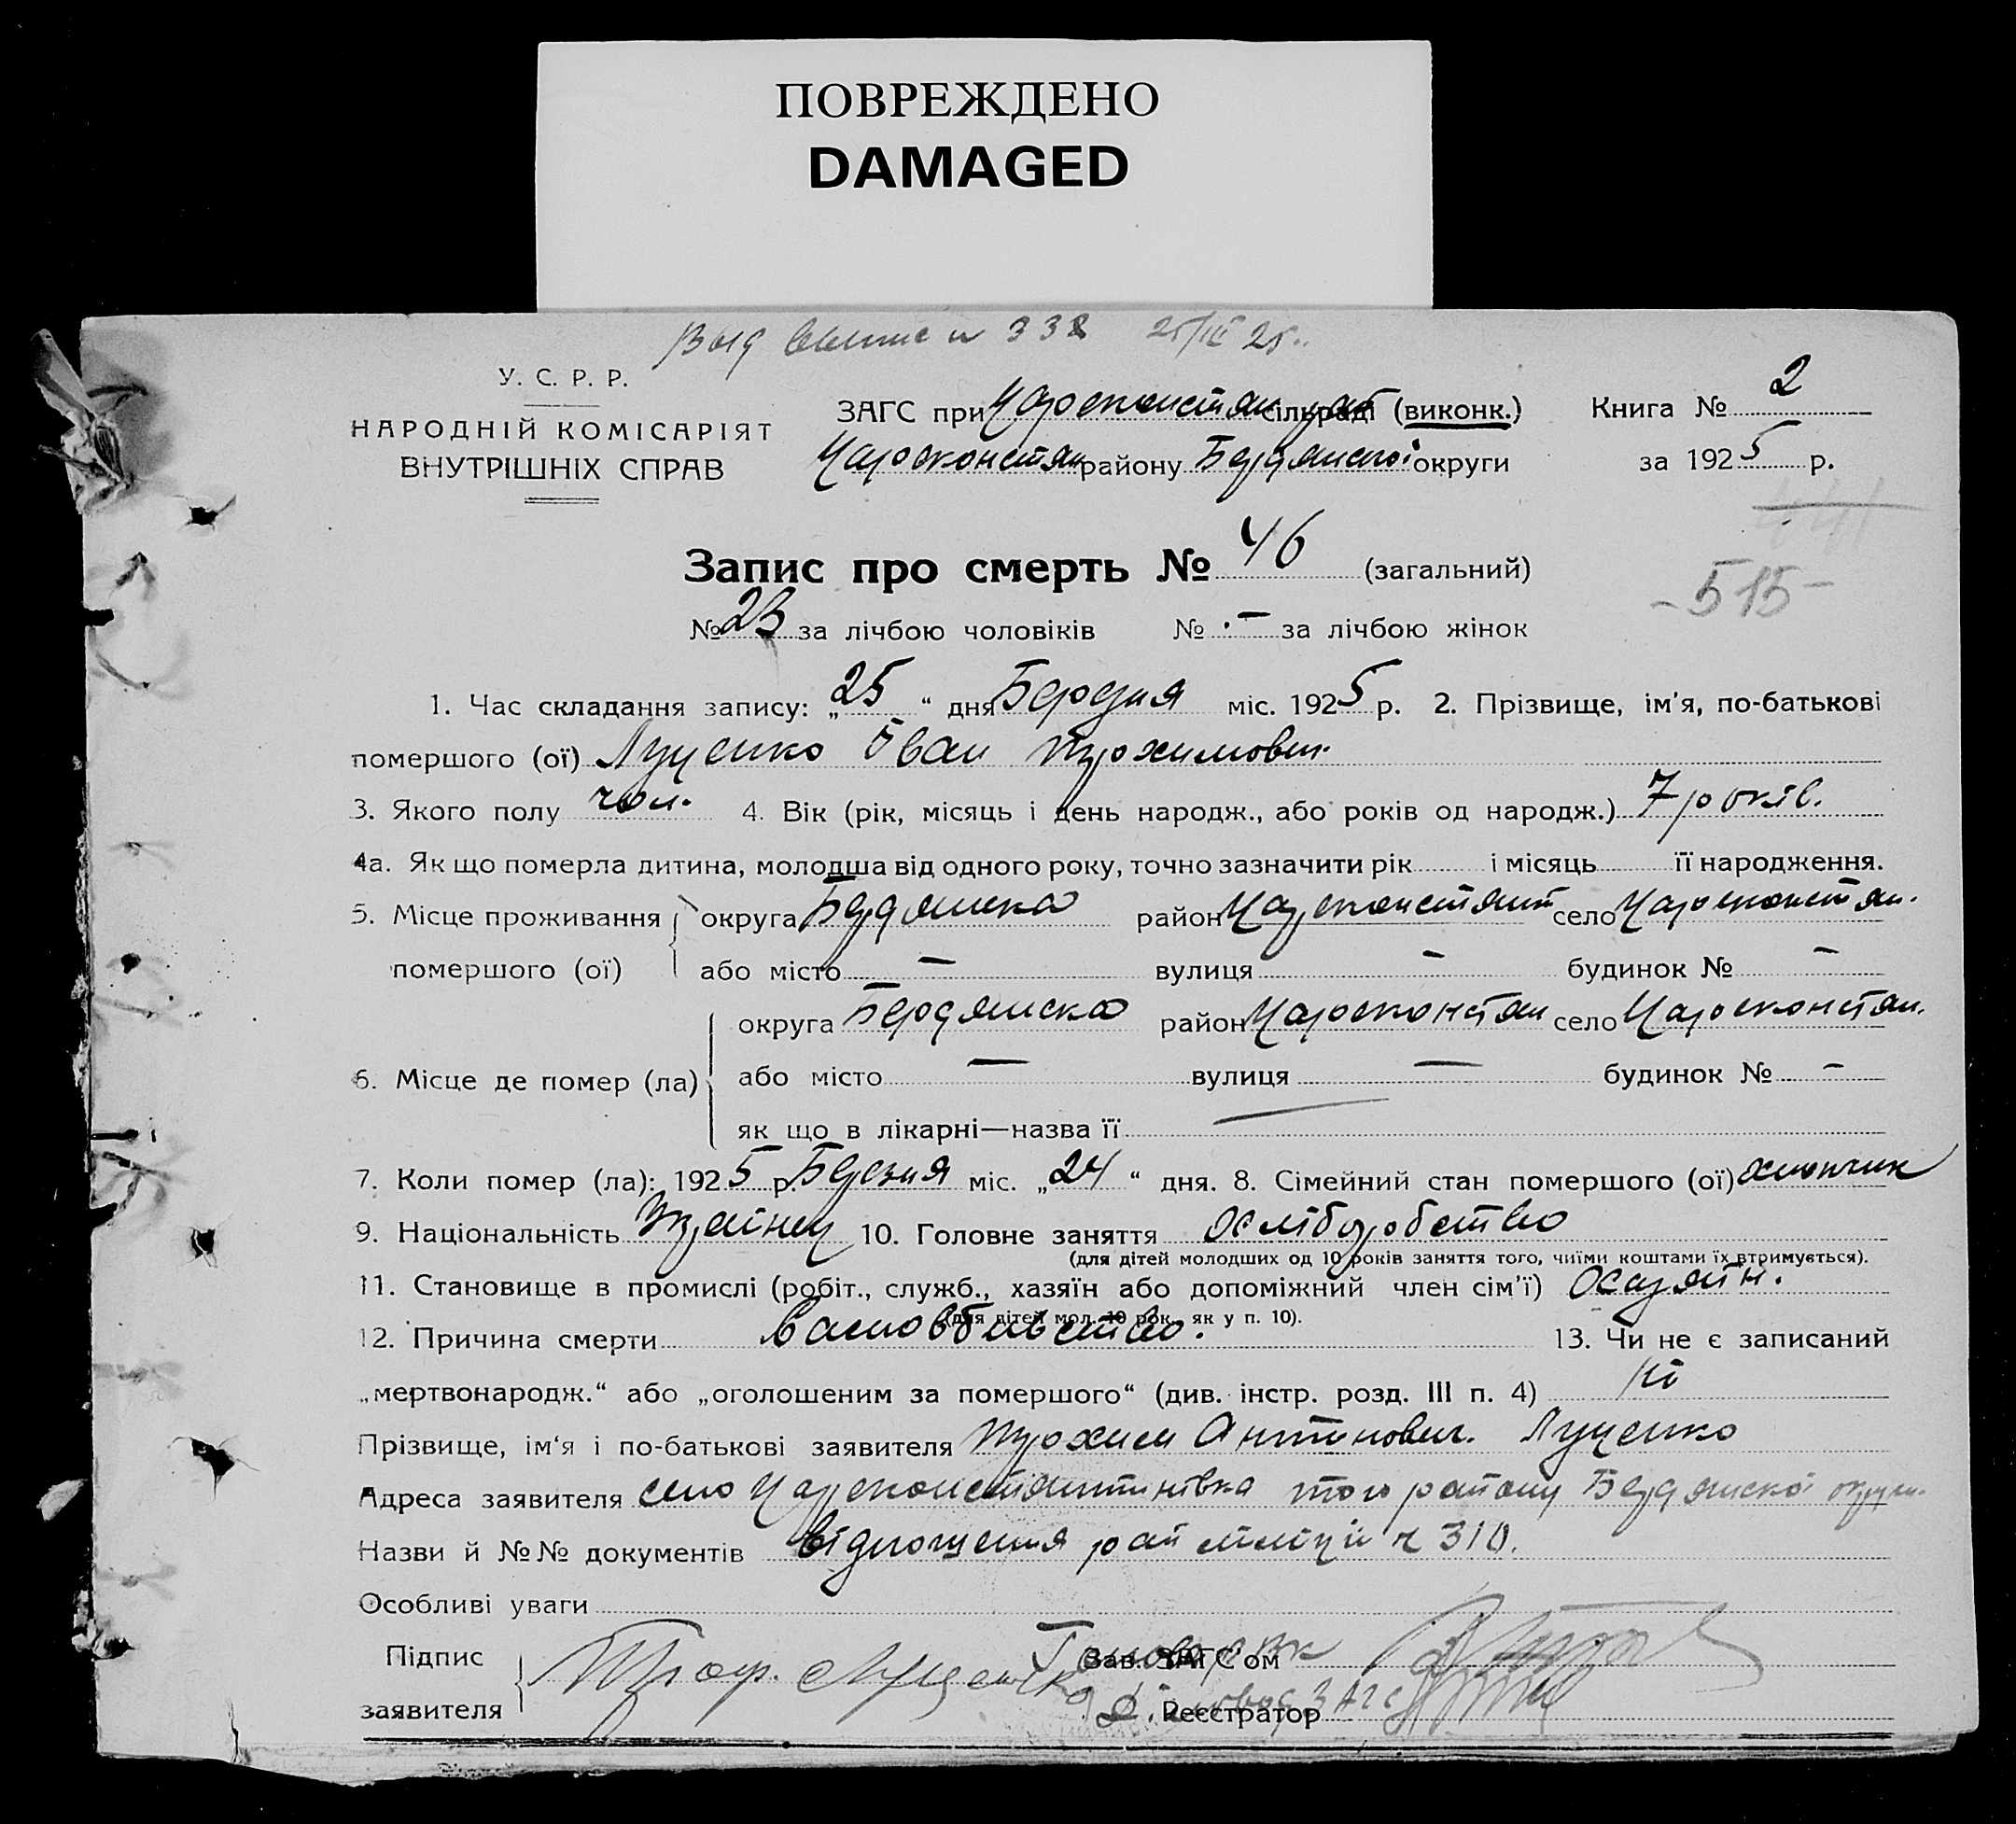 ПОВРЕЖДЕНО
DAMAGED
338 25/III 25
У. С. Р. Р.
НАРОДНІЙ КОМІСАРІЯТ
ВНУТРІШНІХ СПРАВ
ЗАГС при Царекконстян сільраді (виконк.) Книга № 2
Царекконстян району Бердянської округи за 1925 р.
Запис про смерть № 46 (загальний)
-515-
№ 23 за лічбою чоловіків № - за лічбою жінок
1. Час складання запису: „25“ дня Березня міс. 1925 р. 2. Прізвище, ім'я, по-батькові
помершого (ої) Луценко Іван Трохимович
3. Якого полу чол. 4. Вік (рік, місяць і день народж., або років од народж.) 7 років.
4а. Як що померла дитина, молодша від одного року, точно зазначити рік і місяць її народження.
5. Місце проживання помершого (ої) округа Бердянська район Царекконстянт село Царекконстян.
або місто - вулиця - будинок № -
6. Місце де помер (ла) округа Бердянська район Царекконстян село Царекконстян.
або місто — вулиця — будинок № -
як що в лікарні—назва її —
7. Коли помер (ла): 1925 р. Березня міс. „24“ дня. 8. Сімейний стан помершого (ої) хлопчик
9. Національність Українец 10. Головне заняття хліборобство
(для дітей молодших од 10 років заняття того, чиїми коштами їх втримується).
11. Становище в промислі (робіт., служб., хазяїн або допоміжний член сім'ї) Хазяїн.
(для дітей мол. 10 рок. як у п. 10).
12. Причина смерти 13. Чи не є записаний
„мертвонародж.“ або „оголошеним за помершого“ (див. інстр. розд. III п. 4) Ні
Прізвище, ім'я і по-батькові заявителя Трохим Антинович. Луценко
Адреса заявителя село Царекконстянтинівка того району Бердянської округи.
Назви й №№ документів Відношення рай міліції ч 310.
Особливі уваги
Підпис заявителя Троф. Луценко Зав. ЗАГС'ом
Реєстратор